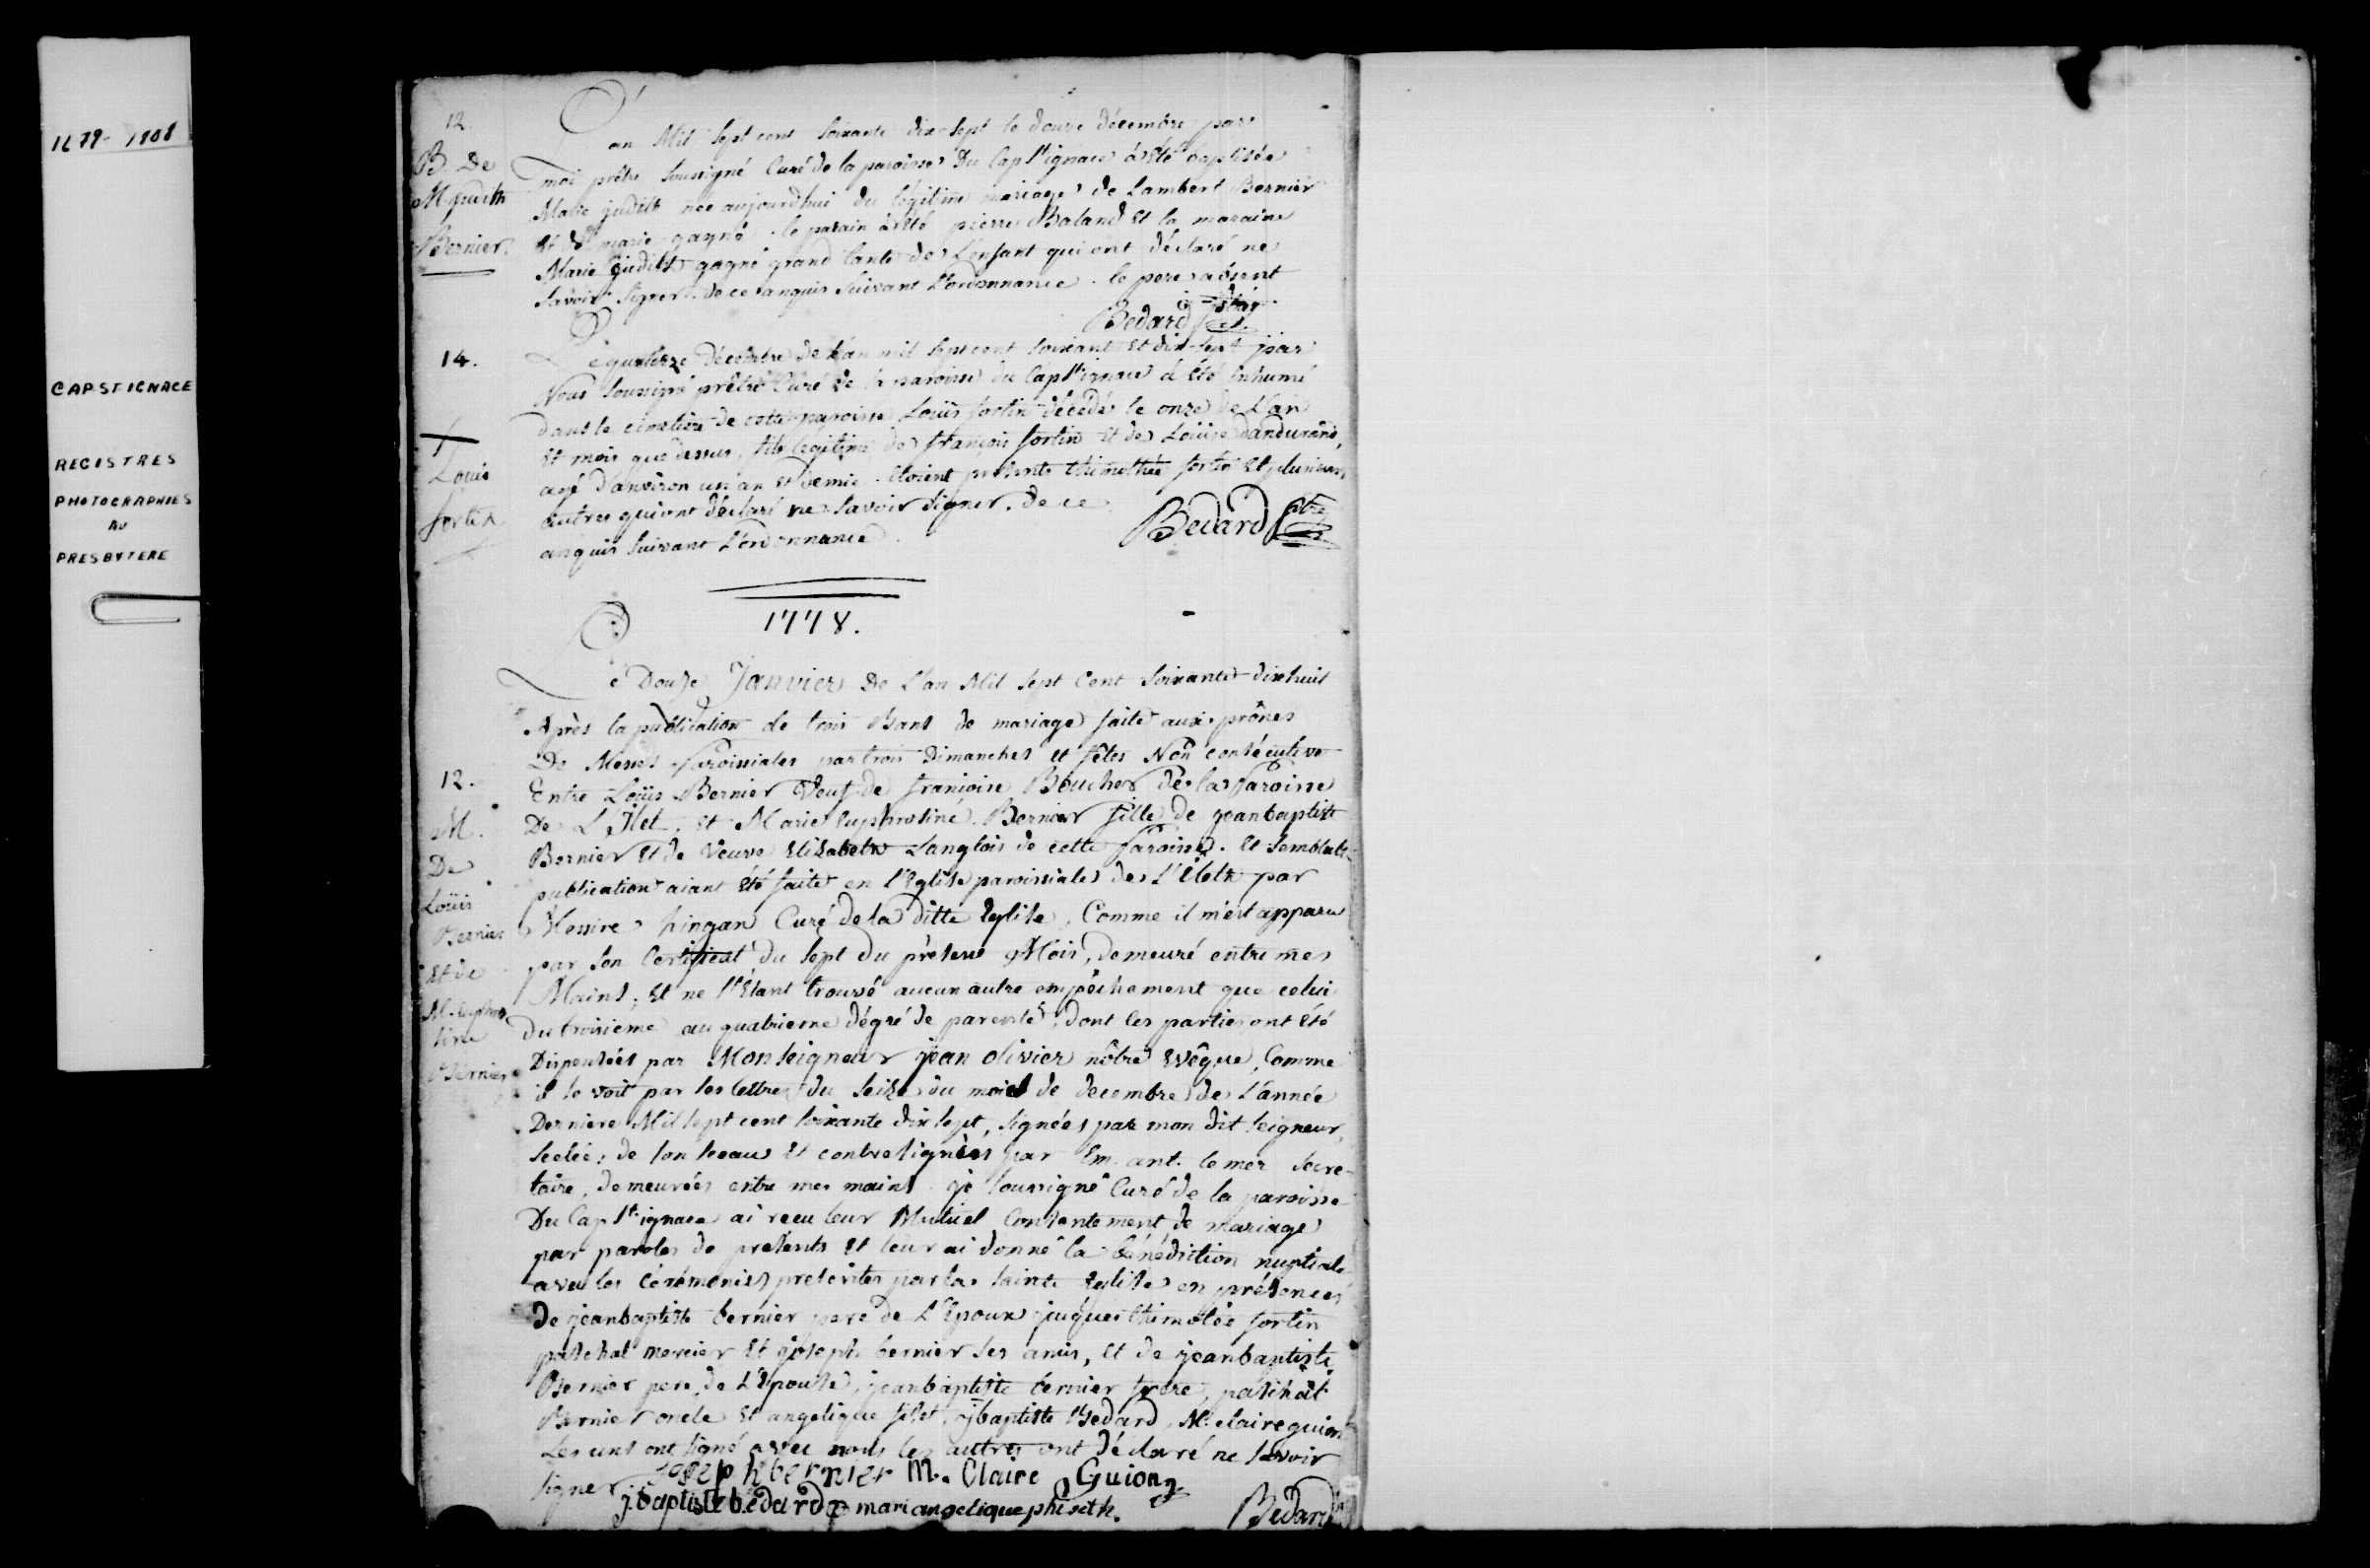 1679-1908
CAP ST IGNACE
REGISTRES
PHOTOGRAPHIES
AU
PRESBYTERE
12
B. De
M. judith
Bernier.
L'an Mil sept cent soixante dix-sept le douze décembre par
moi prêtre soussigné Curé de la paroisse Du Cap St ignace a été baptisée
Marie judith née aujourdhui du légitime mariage de Lambert Bernier
et de marie gagné. le parain a été pierre Baland et la maraine
Marie judith gagné grand tante de L'enfant qui ont déclaré ne
savoir signer. de ce anquis suivant L'ordonnance. le pere absent
Bedard ptre
14.
Louis
fortin
Le quatorze décembre de l'an mil sept cent soixant et dix-sept par
Nous soussigné prêtre Curé de la paroisse du Cap St ignace a été inhumé
dans le cimetière de cette paroisse Louis fortin décédé le onze de L'an
et mois que dessus, fils légitime de françois fortin et de Louise dandurand,
agé d'environ un an et demie. Etoient présents thimothée fortin et plusieurs
autres qui ont déclaré ne savoir signer. de ce
anquis suivant L'ordonnance.
Bedard ptre
1778.
12.
M.
De
Louis
Bernier
et de
M. euphro
sine
Bernier
Le Douze Janvier De L'an Mil sept Cent soixante dix huit
Après la publication de trois Bans de mariage faite aux prônes
De Messes Paroissiales par trois Dimanches et fêtes Non consécutives
Entre Loüis Bernier Veuf de françoise Boucher de la Paroisse
De L'Ilet, et Marie euphrosine Bernier fille de jean baptiste
Bernier et de Veuve Elisabeth Langlois de cette Paroisse. et semblable
publication aiant été faite en l'Eglise paroissiale de L'ilette par
Messire hingan Curé de la ditte Eglise, Comme il m'est apparu
par son Certificat du sept du présent Mois, demeuré entre mes
Mains; et ne s'étant trouvé aucun autre empêchement que celui
du troisieme au quatrieme dégré de parenté, dont les parties ont été
Dispensées par Monseigneur jean olivier nôtre evêque, Comme
il se voit par les lettres du seize du mois de decembre de L'année
Derniere Mil sept cent soixante dix sept, signées par mon dit seigneur,
seelées de son sceau et contresignées par Em. ant. lemer secre-
taire, demeurées entre mes mains. je soussigné Curé de la paroisse
Du Cap St ignace ai reçu leur Mutuel Consentement de mariage
par paroles de présents et leur ai donné la bénédiction nuptiale
avec les Cérémonies présentes par la sainte Eglise en présence
De jean baptiste bernier pere de L'Epoux jacques thimotée fortin
paschal mercier et joseph bernier ses amis, et de jean baptiste
Bernier pere de L'Epouse, jean baptiste bernier frere, paschal
Bernier oncle et angelique filet, j baptiste Bedard, M. claire guion
Les uns ont signé avec nous les autres ont déclaré ne savoir
signer joseph bernier M. Claire Guion
j. baptiste bedard mari angelique phiseth.
Bedard